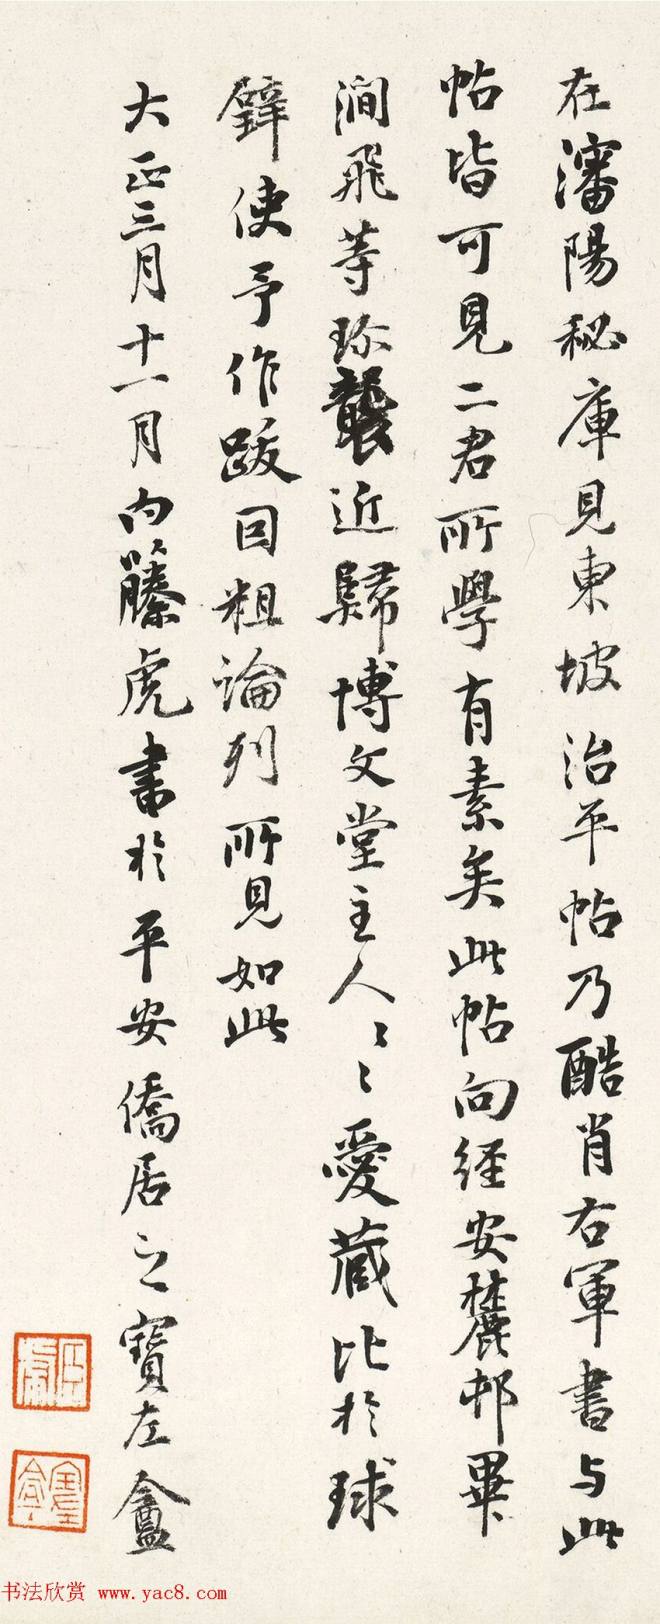 在瀋陽秘庫見東坡治平帖乃酷肖右軍書与此
帖皆可見二君所學有素矣此帖向経安麓邨畢
澗飛等珎襲近歸博文堂主人〻〻愛蔵比於球
使予作跋因粗論列所見如此
大正三月十一月内藤虎書於平安僑居之寶左盦
书法欣赏 www.yac8.com